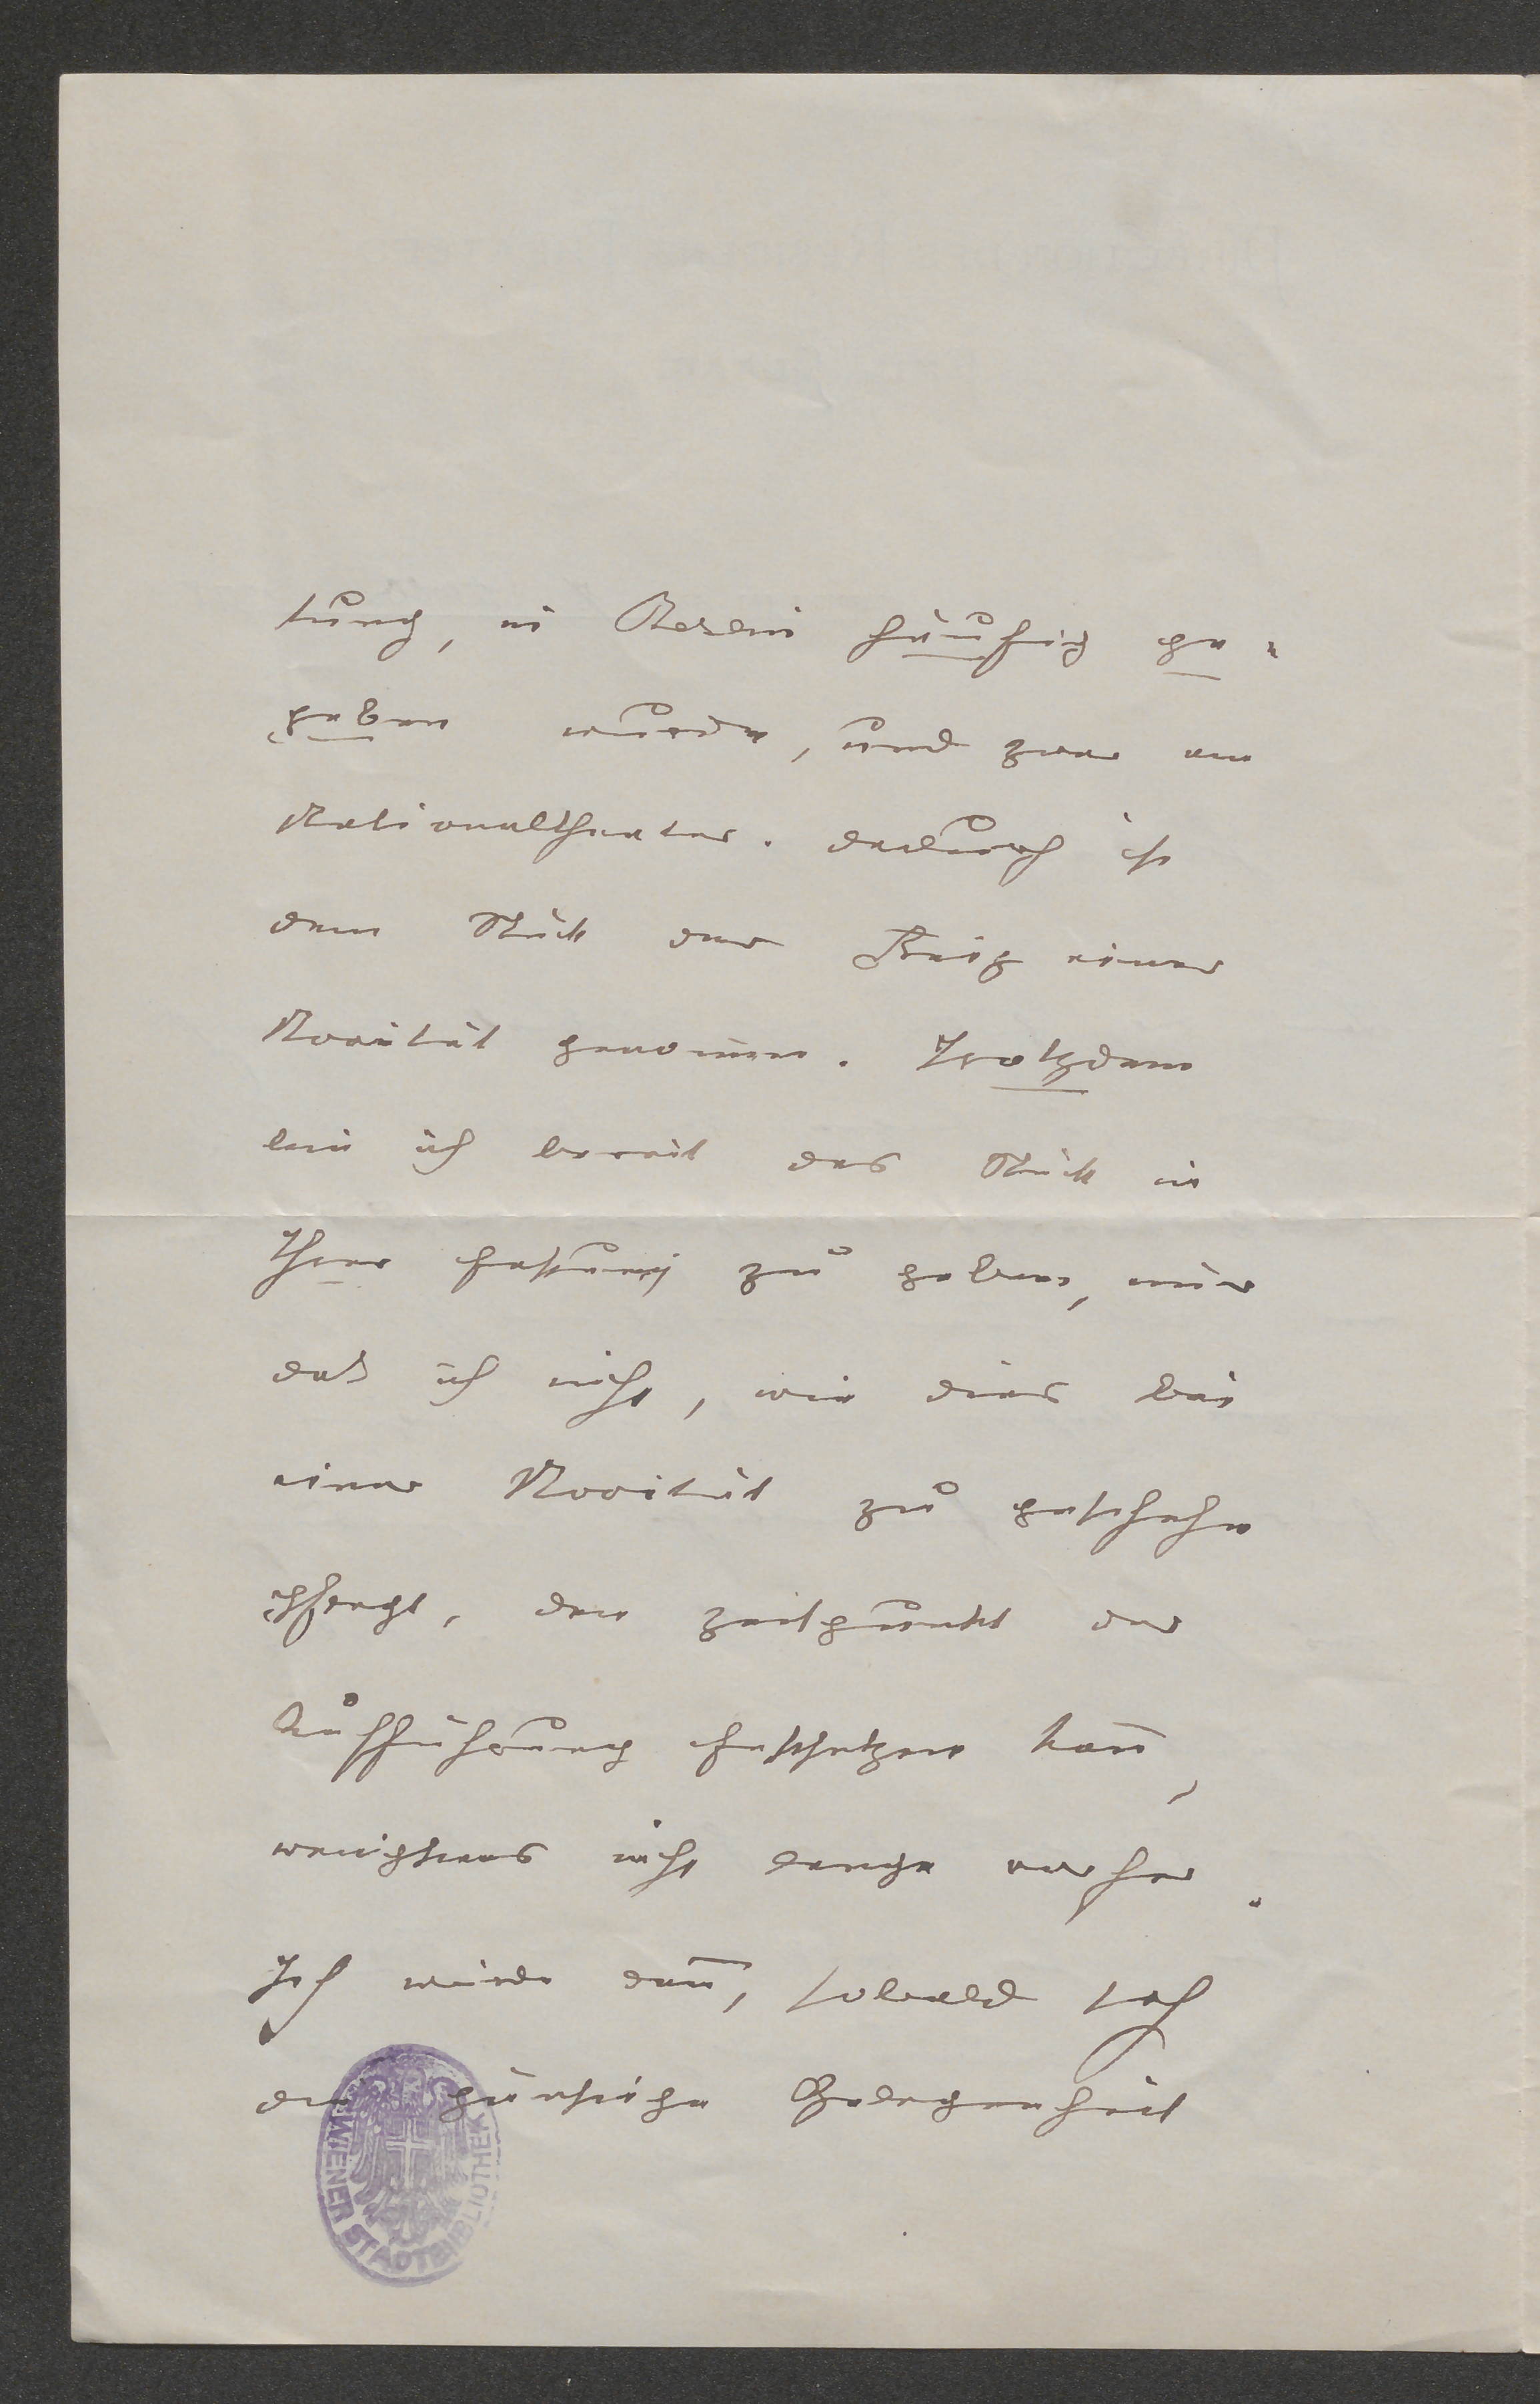 tung, in Berlin häufig ge-
geben wurde, und zwar am
Nationaltheater. Dadurch ist
dem Stück der Reiz einer
Novität genom̅en. Trotzdem
bin ich bereit das Stück in
Ihrer Fassung zu geben, nur
daß ich nicht, wie dies bei
einer Novität zu geschehen
pflegt, den Zeitpunkt der
Aufführung festsetzen kan̅,
wenigstens nicht lange vorher.
Ich würde dan̅, sobald sich
die günstige Gelegenheit
WIENER STADTBIBLIOTHEK